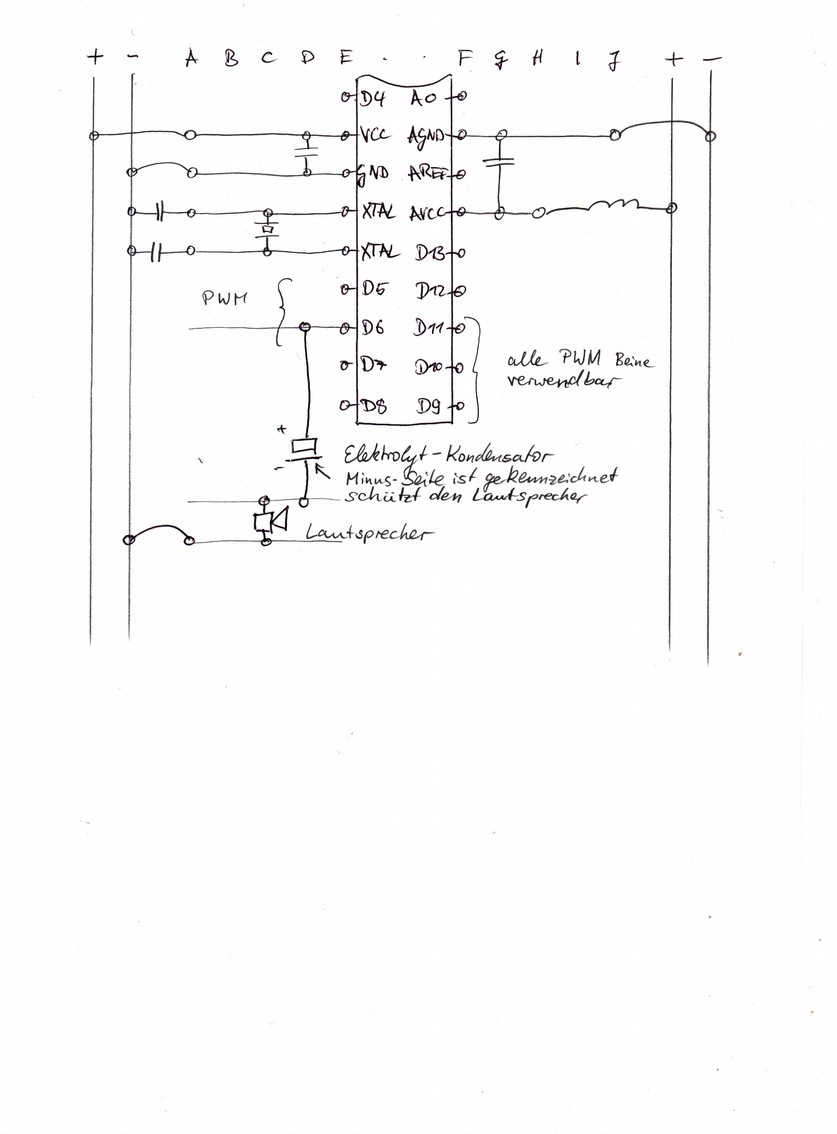 + - A B C D E . . F G H I J + -
D4 A0
VCC AGND
GND AREF
XTAL AVCC
XTAL D13
D5 D12
PWM
D6 D11
alle PWM Beine
verwendbar
D7 D10
D8 D9
+
-
Elektrolyt-Kondensator
Minus-Seite ist gekennzeichnet
schützt den Lautsprecher
Lautsprecher